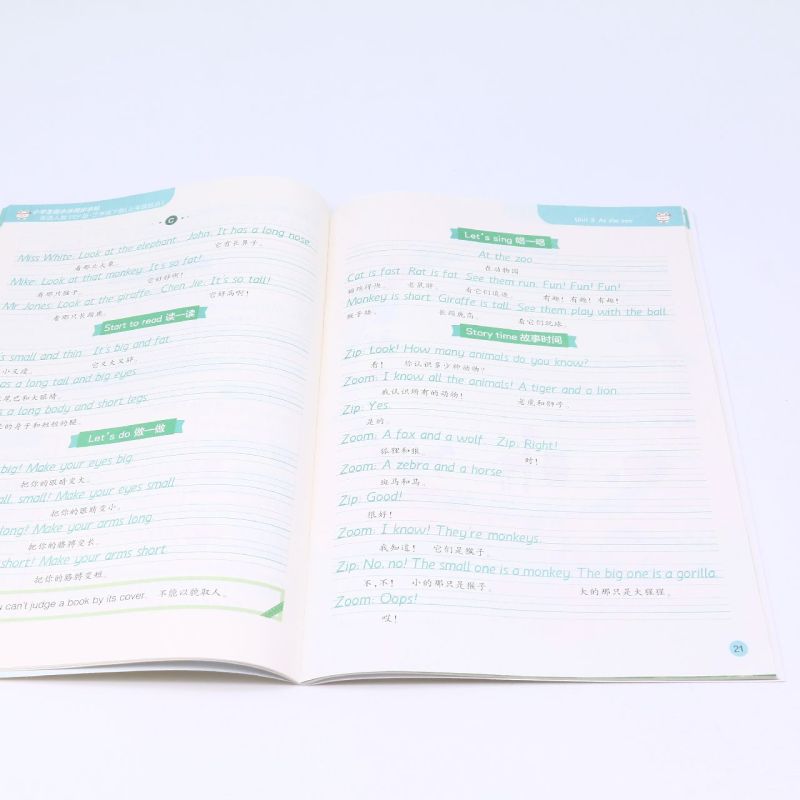 C
Miss White: Look at the elephant. John: It has a long nose.
看那头大象。 它有长鼻子。
Mike: Look at that monkey. It's so fat!
看那只猴子。 它好胖啊!
Mr Jones: Look at the giraffe. Chen Jie: It's so tall!
看那只长颈鹿。 它好高啊!
Start to read 读一读
's small and thin. It's big and fat.
小又瘦。 它又大又胖。
as a long tail and big eyes.
尾巴和大眼睛。
s a long body and short legs.
的身子和短短的腿。
Let's do 做一做
big! Make your eyes big.
把你的眼睛变大。
all, small! Make your eyes small.
把你的眼睛变小。
long! Make your arms long.
把你的胳膊变长。
short! Make your arms short.
把你的胳膊变短。
u can't judge a book by its cover. 不能以貌取人。
Unit 3 At the zoo
Let's sing 唱一唱
At the zoo
在动物园
Cat is fast. Rat is fat. See them run. Fun! Fun! Fun!
猫跑得快。 老鼠胖。 看它们追逐。 有趣!有趣!有趣!
Monkey is short. Giraffe is tall. See them play with the ball.
猴子矮。 长颈鹿高。 看它们玩球。
Story time 故事时间
Zip: Look! How many animals do you know?
看! 你认识多少种动物?
Zoom: I know all the animals! A tiger and a lion.
我认识所有的动物! 老虎和狮子。
Zip: Yes.
是的。
Zoom: A fox and a wolf. Zip: Right!
狐狸和狼。 对!
Zoom: A zebra and a horse.
斑马和马。
Zip: Good!
很好!
Zoom: I know! They're monkeys.
我知道! 它们是猴子。
Zip: No, no! The small one is a monkey. The big one is a gorilla.
不,不! 小的那只是猴子。 大的那只是大猩猩。
Zoom: Oops!
哎!
21